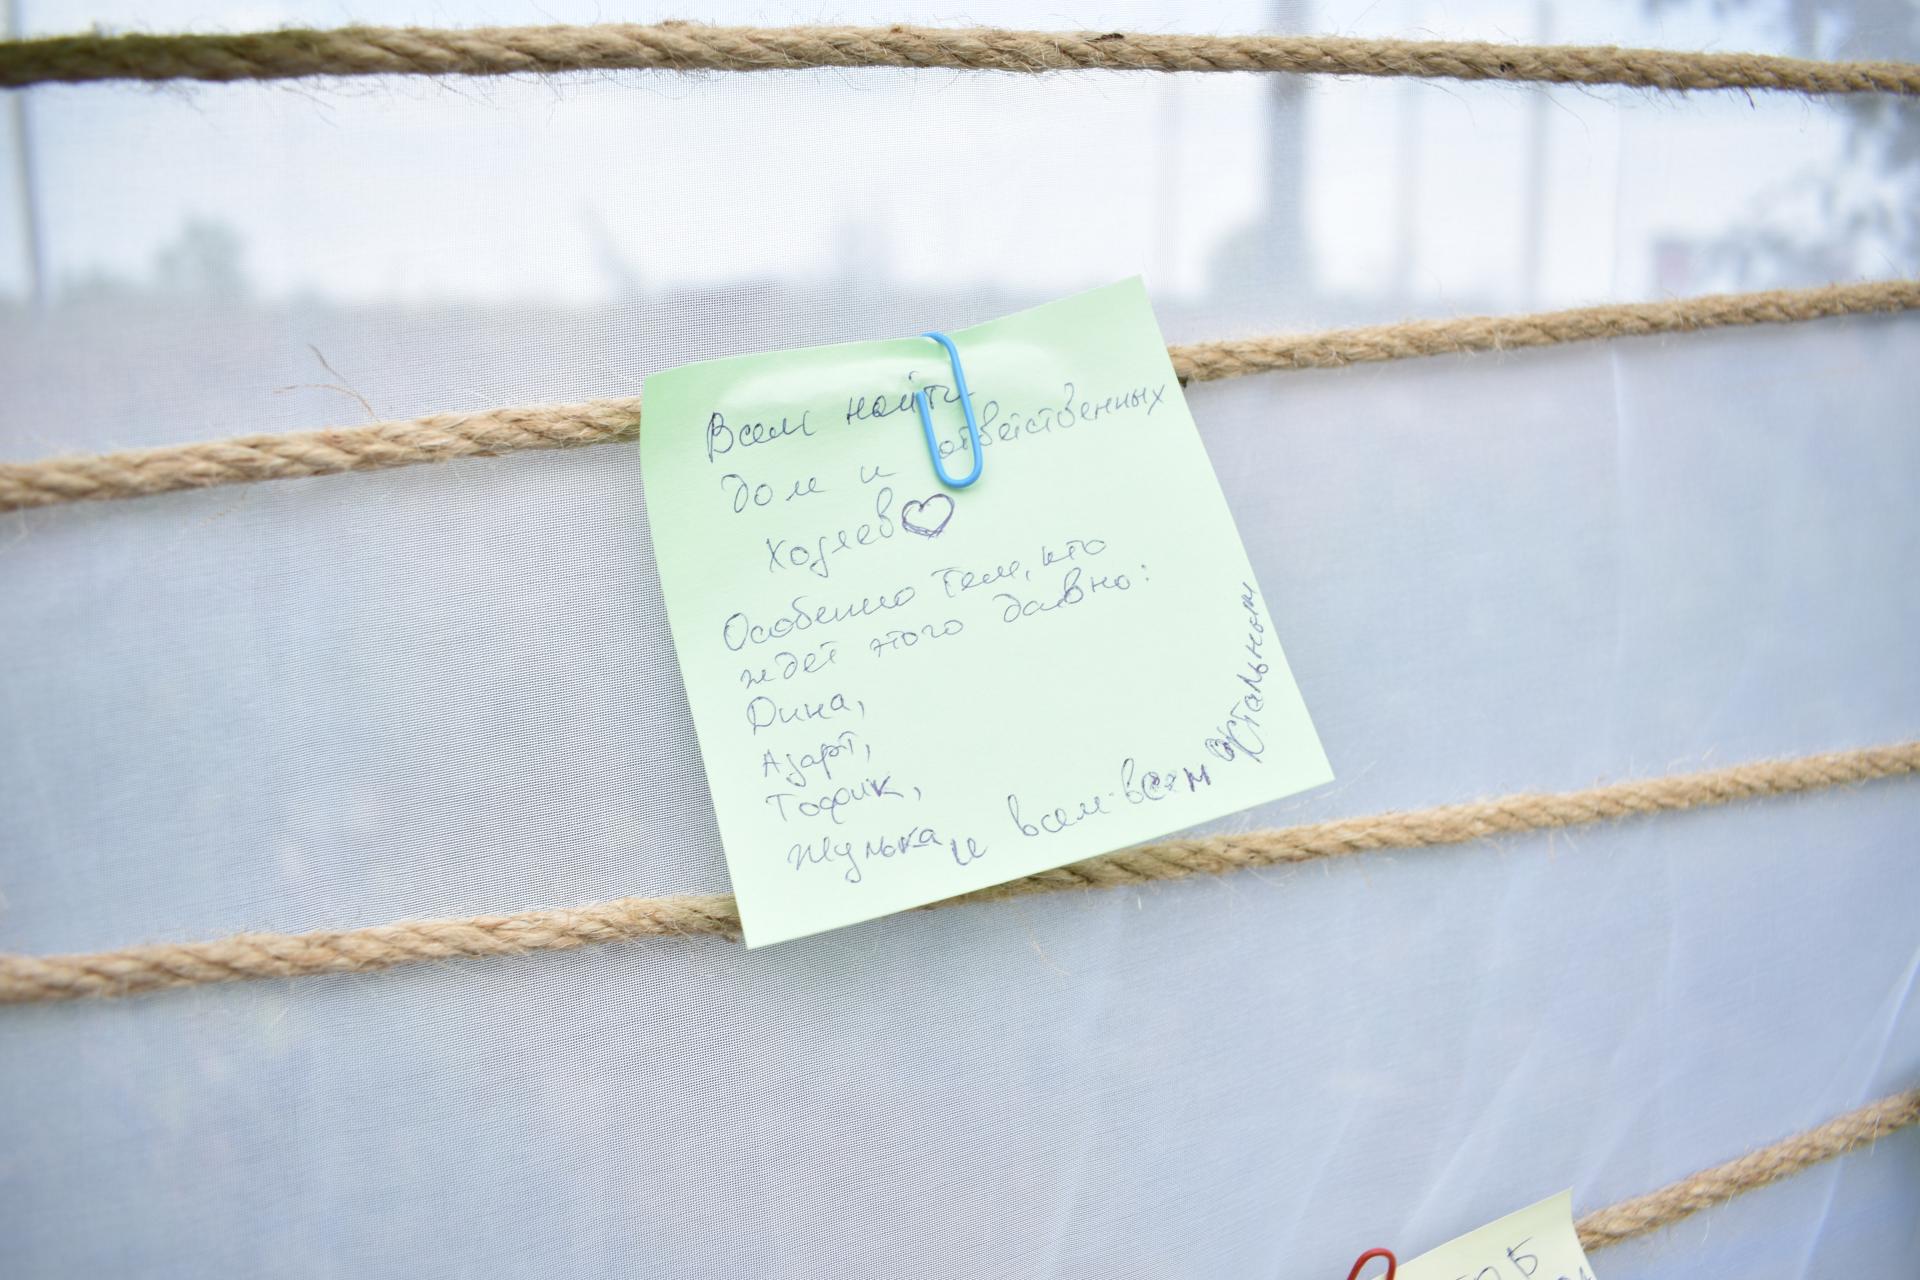 Всем найти
дом и ответственных
хозяев
Особенно тем, кто
ждёт этого давно:
Дина,
Азарт,
Тофик,
Жулька и всем-всем остальным